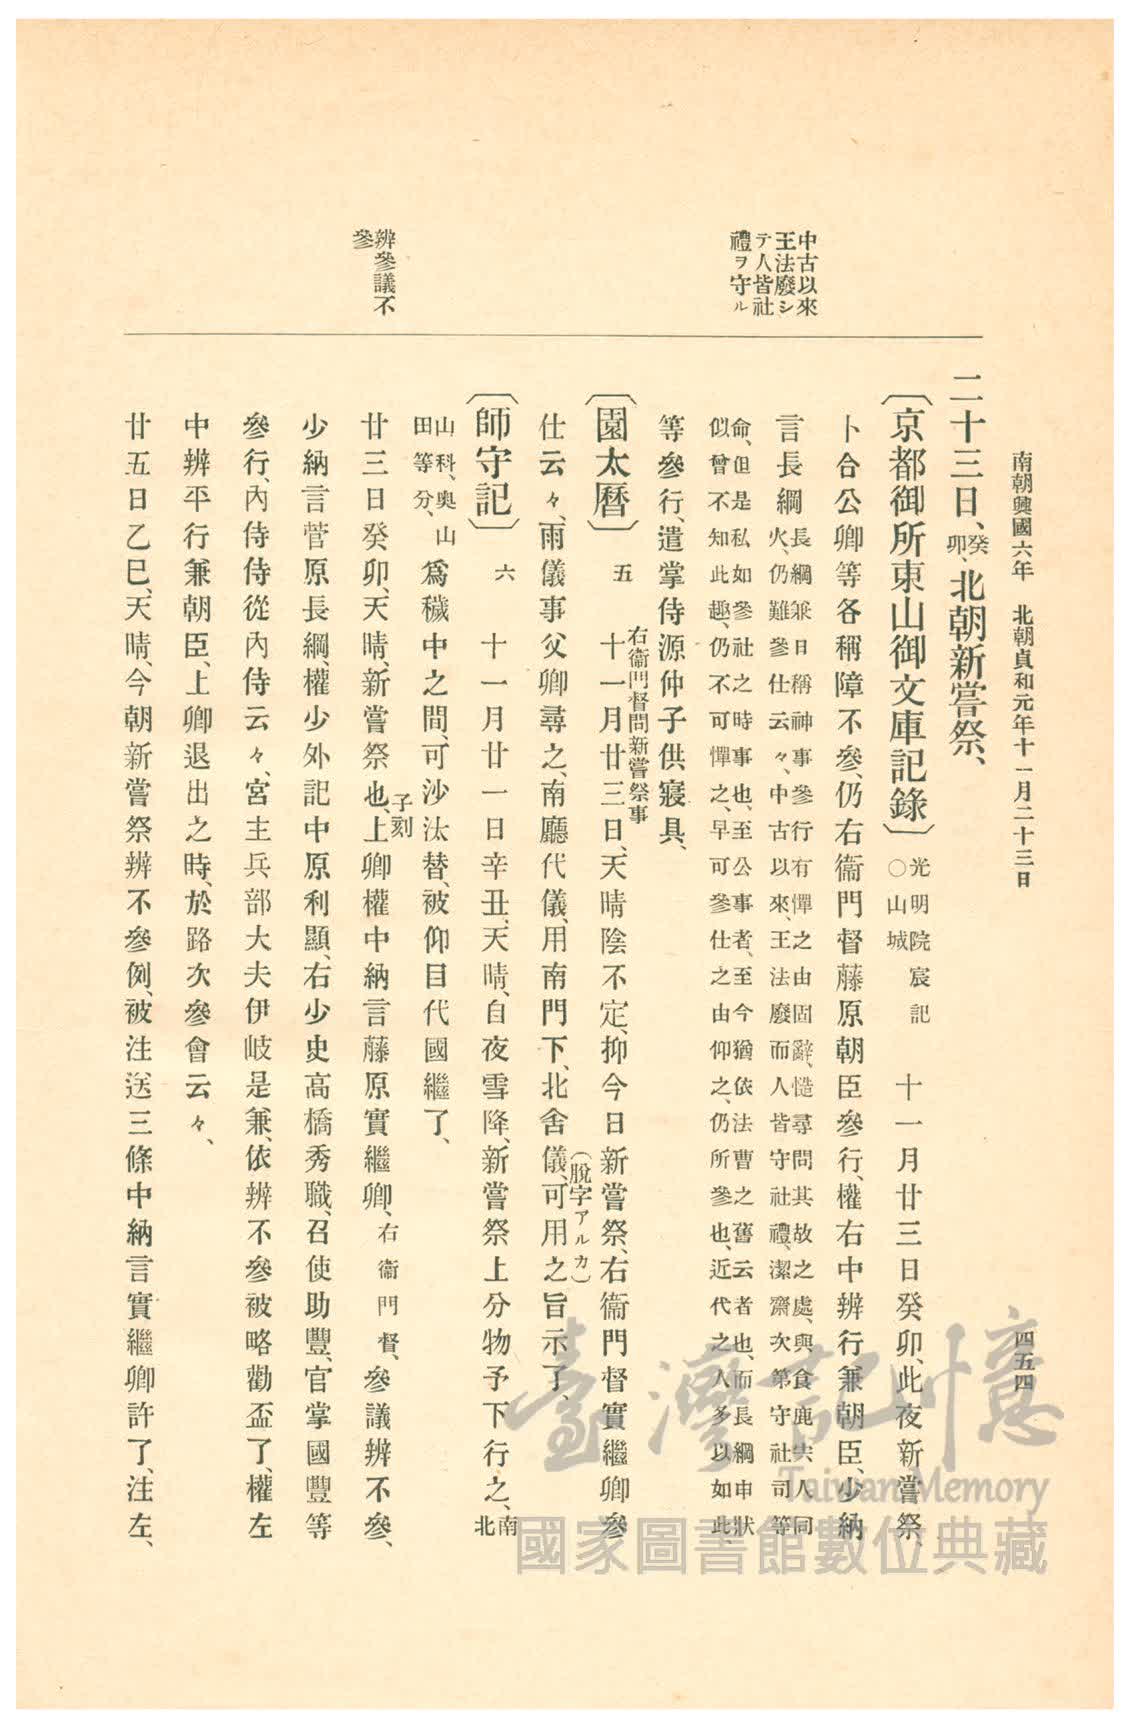 南朝興國六年 北朝貞和元年十一月二十三日
四五四
中古以來
王法廢シ
テ人皆社
禮ヲ守ル
辨參議不
參
二十三日、癸卯、北朝新嘗祭、
〔京都御所東山御文庫記錄〕 光明院宸記
○山城
十一月廿三日癸卯、此夜新嘗祭、
卜合公卿等各稱障不參、仍右衞門督藤原朝臣參行、權右中辨行兼朝臣、少納
言長綱
長綱兼日稱神事參行有憚之由固辭、慥尋問其故之處、與食鹿宍人同
火、仍難參仕云々、中古以來、王法廢而人皆守社禮、潔齋次第守社司等
命、但是私如參社之時事也、至公事者、至今猶依法曹之舊云者也、而長綱申狀
似曾不知此趣、仍不可憚之、早可參仕之由仰之、仍所參也、近代之人多以如此、
等參行、遣掌侍源仲子供寢具、
〔園太曆〕 五
右衞門督問新嘗祭事
十一月廿三日、天晴陰不定、抑今日新嘗祭、右衞門督實繼卿參
仕云々、雨儀事父卿尋之、南廳代儀、用南門下、北舍儀、可用之旨示了、
(脫字アルカ)
〔師守記〕 六 十一月廿一日辛丑、天晴、自夜雪降、新嘗祭上分物予下行之、南
北
山科、奧山
田等分、
爲穢中之間、可沙汰替、被仰目代國繼了、
廿三日癸卯、天晴、新嘗祭也、上卿權中納言藤原實繼卿、右衞門督、參議辨不參、
子刻
少納言菅原長綱、權少外記中原利顯、右少史高橋秀職、召使助豐、官掌國豐等
參行、內侍侍從內侍云々、宮主兵部大夫伊岐是兼、依辨不參被略勸盃了、權左
中辨平行兼朝臣、上卿退出之時、於路次參會云々、
廿五日乙巳、天晴、今朝新嘗祭辨不參例、被注送三條中納言實繼卿許了、注左、
臺灣記憶
Taiwan Memory
國家圖書館數位典藏